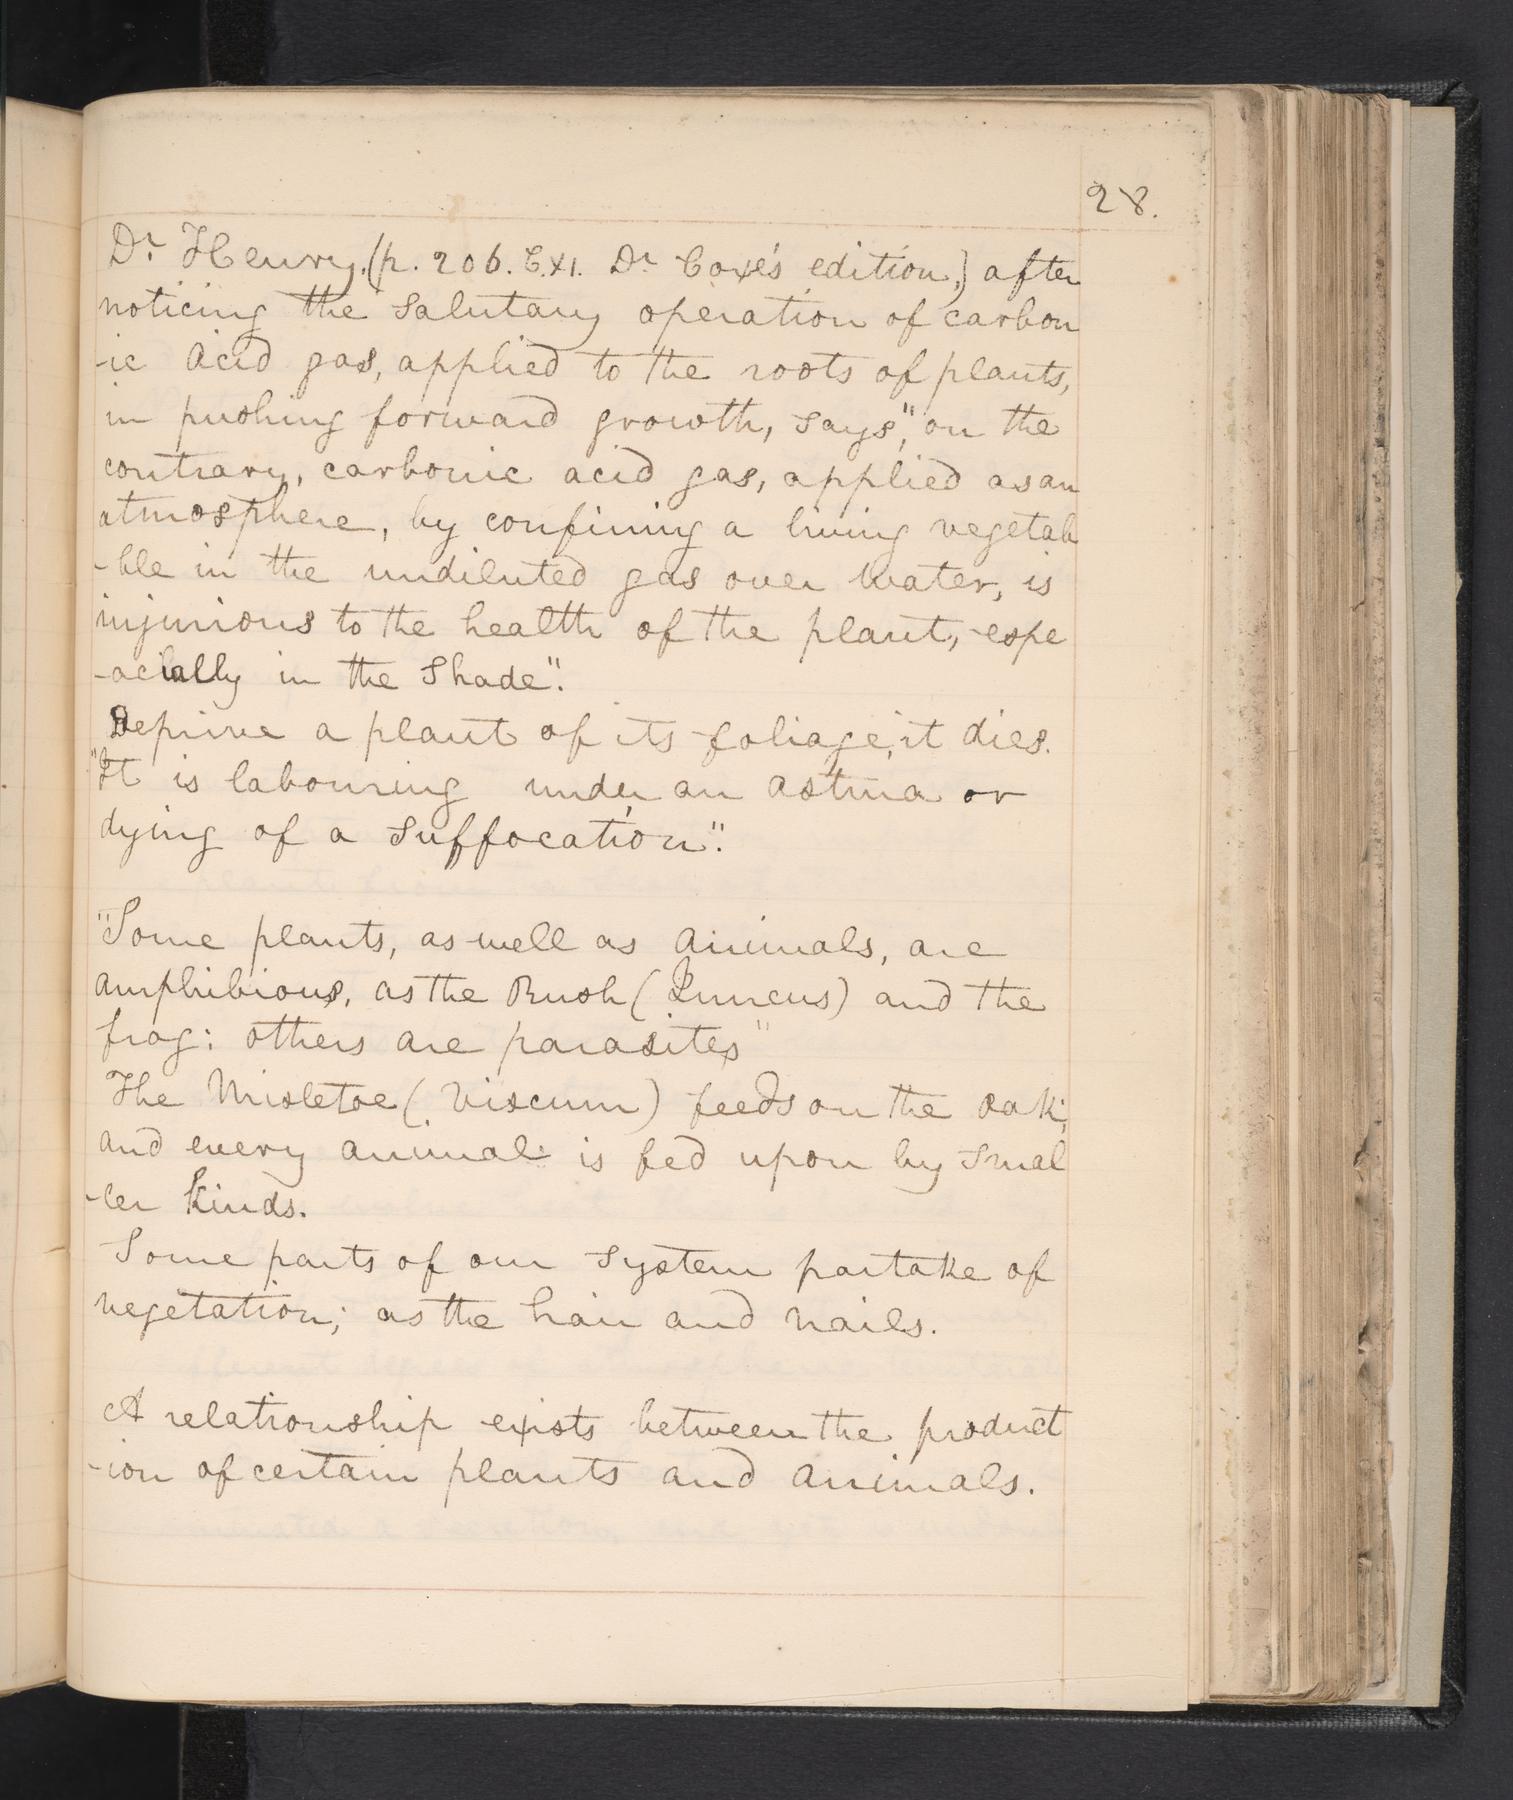 28.
Dr Henry, (p. 206. C.XI. Dr Coxe's edition,) after
noticing the salutary operation of carbon
-ic acid gas, applied to the roots of plants,
in pushing forward growth, says, "on the
contrary, carbonic acid gas, applied as an
atmosphere, by confining a living vegetab
-ble in the undiluted gas over water, is
injurious to the health of the plant, espe
-acially in the shade".
Deprive a plant of its foliage, it dies.
"It is labouring under an astma or
dying of a suffocation".
"Some plants, as well as animals, are
amphibious, as the Rush (Juncus) and the
frog: others are parasites"
The Misletoe (Viscum) feeds on the oak;
and every animal is fed upon by smal
-ler kinds.
Some parts of our system partake of
vegetation; as the hair and nails.
A relationship exists between the product
-ion of certain plants and animals.